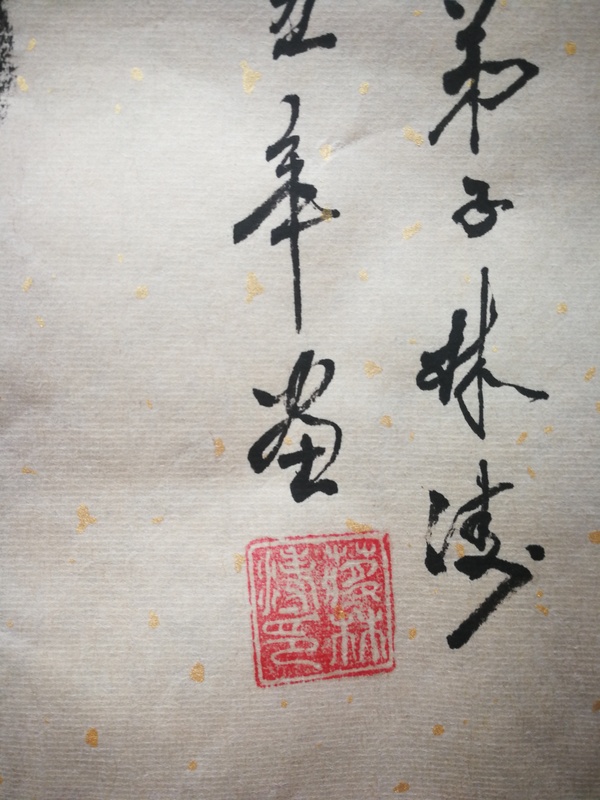 弟子林涛
年画
蒋林
涛印